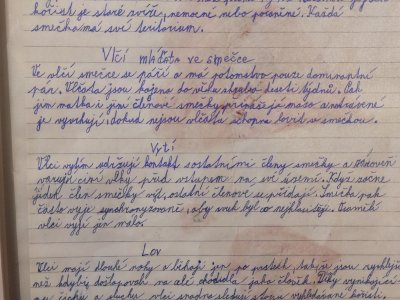 kořist je staré zvíře, nemocné nebo poraněné. Každá
smečka má své teritorium.
Vlčí mláďata ve smečce
Ve vlčí smečce se páří a má potomstvo pouze dominantní
pár. Vlčata jsou kojena do věku alespoň deseti týdnů. Pak
jim matka i jiní členové smečky přináší maso a natrávené
je vyvrhují, dokud nejsou vlčata schopna lovit se smečkou.
Vytí
Vlci vytím udržují kontakt s ostatními členy smečky a zároveň
varují cizí vlky před vstupem na své území. Když začne
jeden člen smečky výt, ostatní členové se přidají. Smečka pak
často vyje synchronizovaně, aby zvuk byl co nejhlasitější. Osamělí
vlci vyjí jen málo.
Lov
Vlci mají dlouhé nohy a běhají jen po prstech, takže jsou rychlejší
než kdyby došlapovali na celé chodidla jako člověk. Díky vynikajícímu
čichu a sluchu vlci snadno sledují stopu vyhlédnuté kořisti.